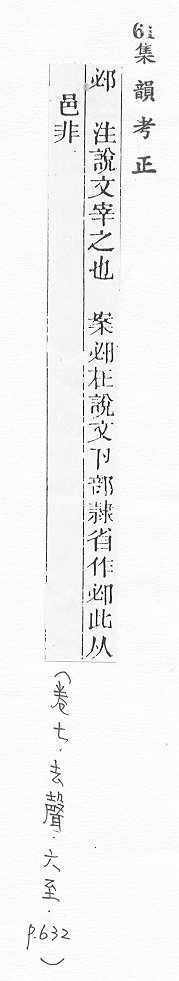 6集韻考正
邲　注說文宰之也　案𠨘在說文卪部隸省作𠨘此从
邑非
(卷七·去聲·六至·p.632)